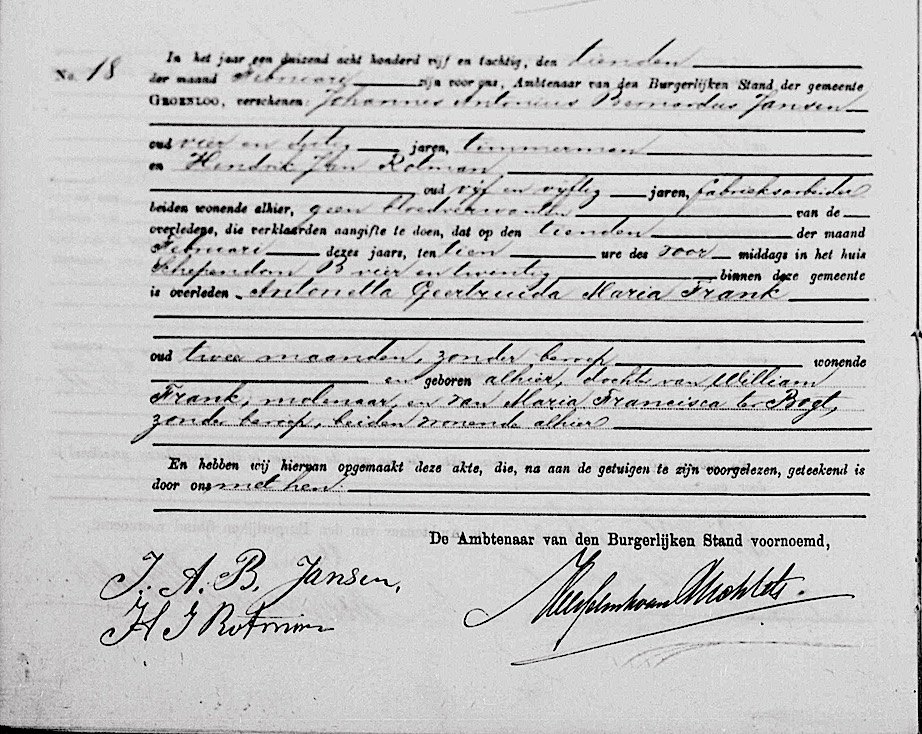 No. 18
In het jaar een duizend acht honderd vijf en tachtig, den tienden
der maand Februarij zijn voor ons, Ambtenaar van den Burgerlijken Stand der gemeente
GROENLOO, verschenen: Johannes Antonius Bernardus Jansen
oud vier en dertig jaren, timmerman
en Hendrik Jan Rotman
oud vijf en vijftig jaren, fabrieksarbeider
beiden wonende alhier, geen bloedverwanten van de
overledene, die verklaarden aangifte te doen, dat op den tienden der maand
Februari dezes jaars, ten tien ure des voor middags in het huis
Schependom B vier en twentig binnen deze gemeente
is overleden Antonetta Geertruida Maria Frank
oud twee maanden, zonder beroep wonende
en geboren alhier, dochter van William
Frank, molenaar, en van Maria Francisca te Bogt,
zonder beroep, beiden wonende alhier
En hebben wij hiervan opgemaakt deze akte, die, na aan de getuigen te zijn voorgelezen, geteekend is
door ons met hen.
De Ambtenaar van den Burgerlijken Stand voornoemd,
J. A. B. Jansen,
H J Rotman